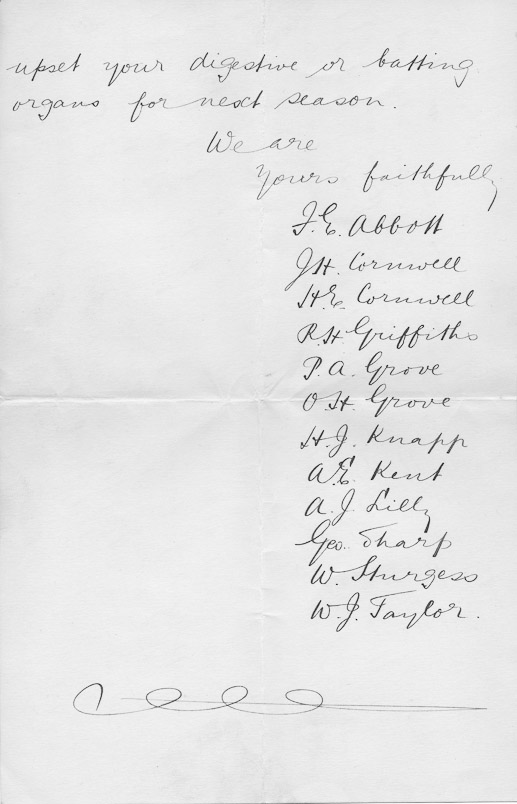 upset your digestive or batting
organs for next season.
We are
Yours faithfully
F.E. Abbott
J.H. Cornwell
H.E. Cornwell
R.H. Griffiths
P.A. Grove
O.H. Grove
H.J. Knapp
A.E. Kent
A.J. Lilly
Geo. Tharp
W. Sturgess
W.J. Taylor.